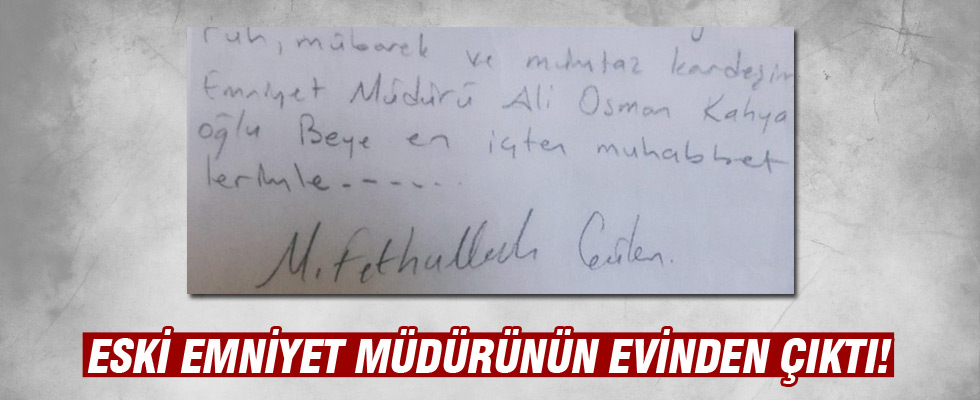 ruh, mübarek ve mümtaz kardeşim
Emniyet Müdürü Ali Osman Kahya
oğlu Beye en içten muhabbet
lerimle------
M. Fethullah Gülen.
ESKİ EMNİYET MÜDÜRÜNÜN EVİNDEN ÇIKTI!